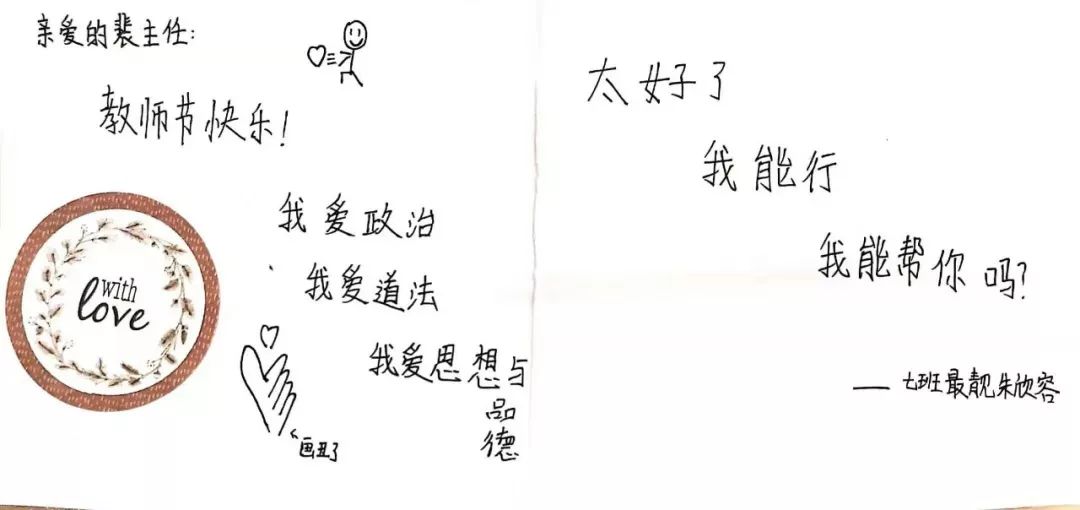 亲爱的裴主任:
教师节快乐!
我爱政治
我爱道法
我爱思想与
品
德
with
love
画丑了
太好了
我能行
我能帮你吗?
——七班最靓朱欣容